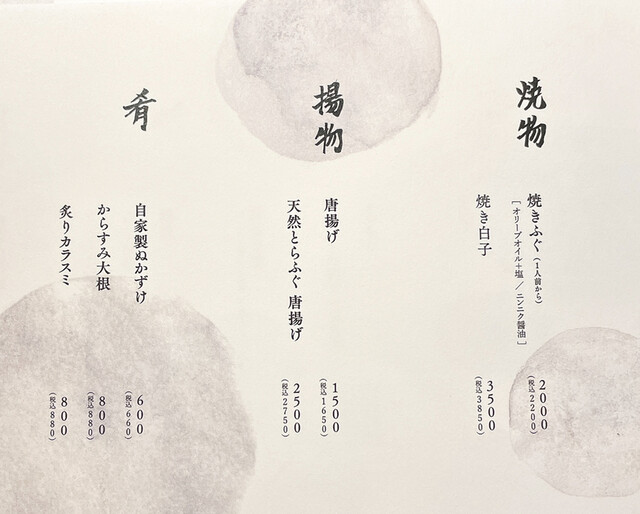 焼物
焼きふぐ（1人前から）
［オリーブオイル＋塩／ニンニク醤油］
2000
（税込2200）
焼き白子
3500
（税込3850）
揚物
唐揚げ
1500
（税込1650）
天然とらふぐ 唐揚げ
2500
（税込2750）
肴
自家製ぬかずけ
600
（税込660）
からすみ大根
800
（税込880）
炙りカラスミ
800
（税込880）